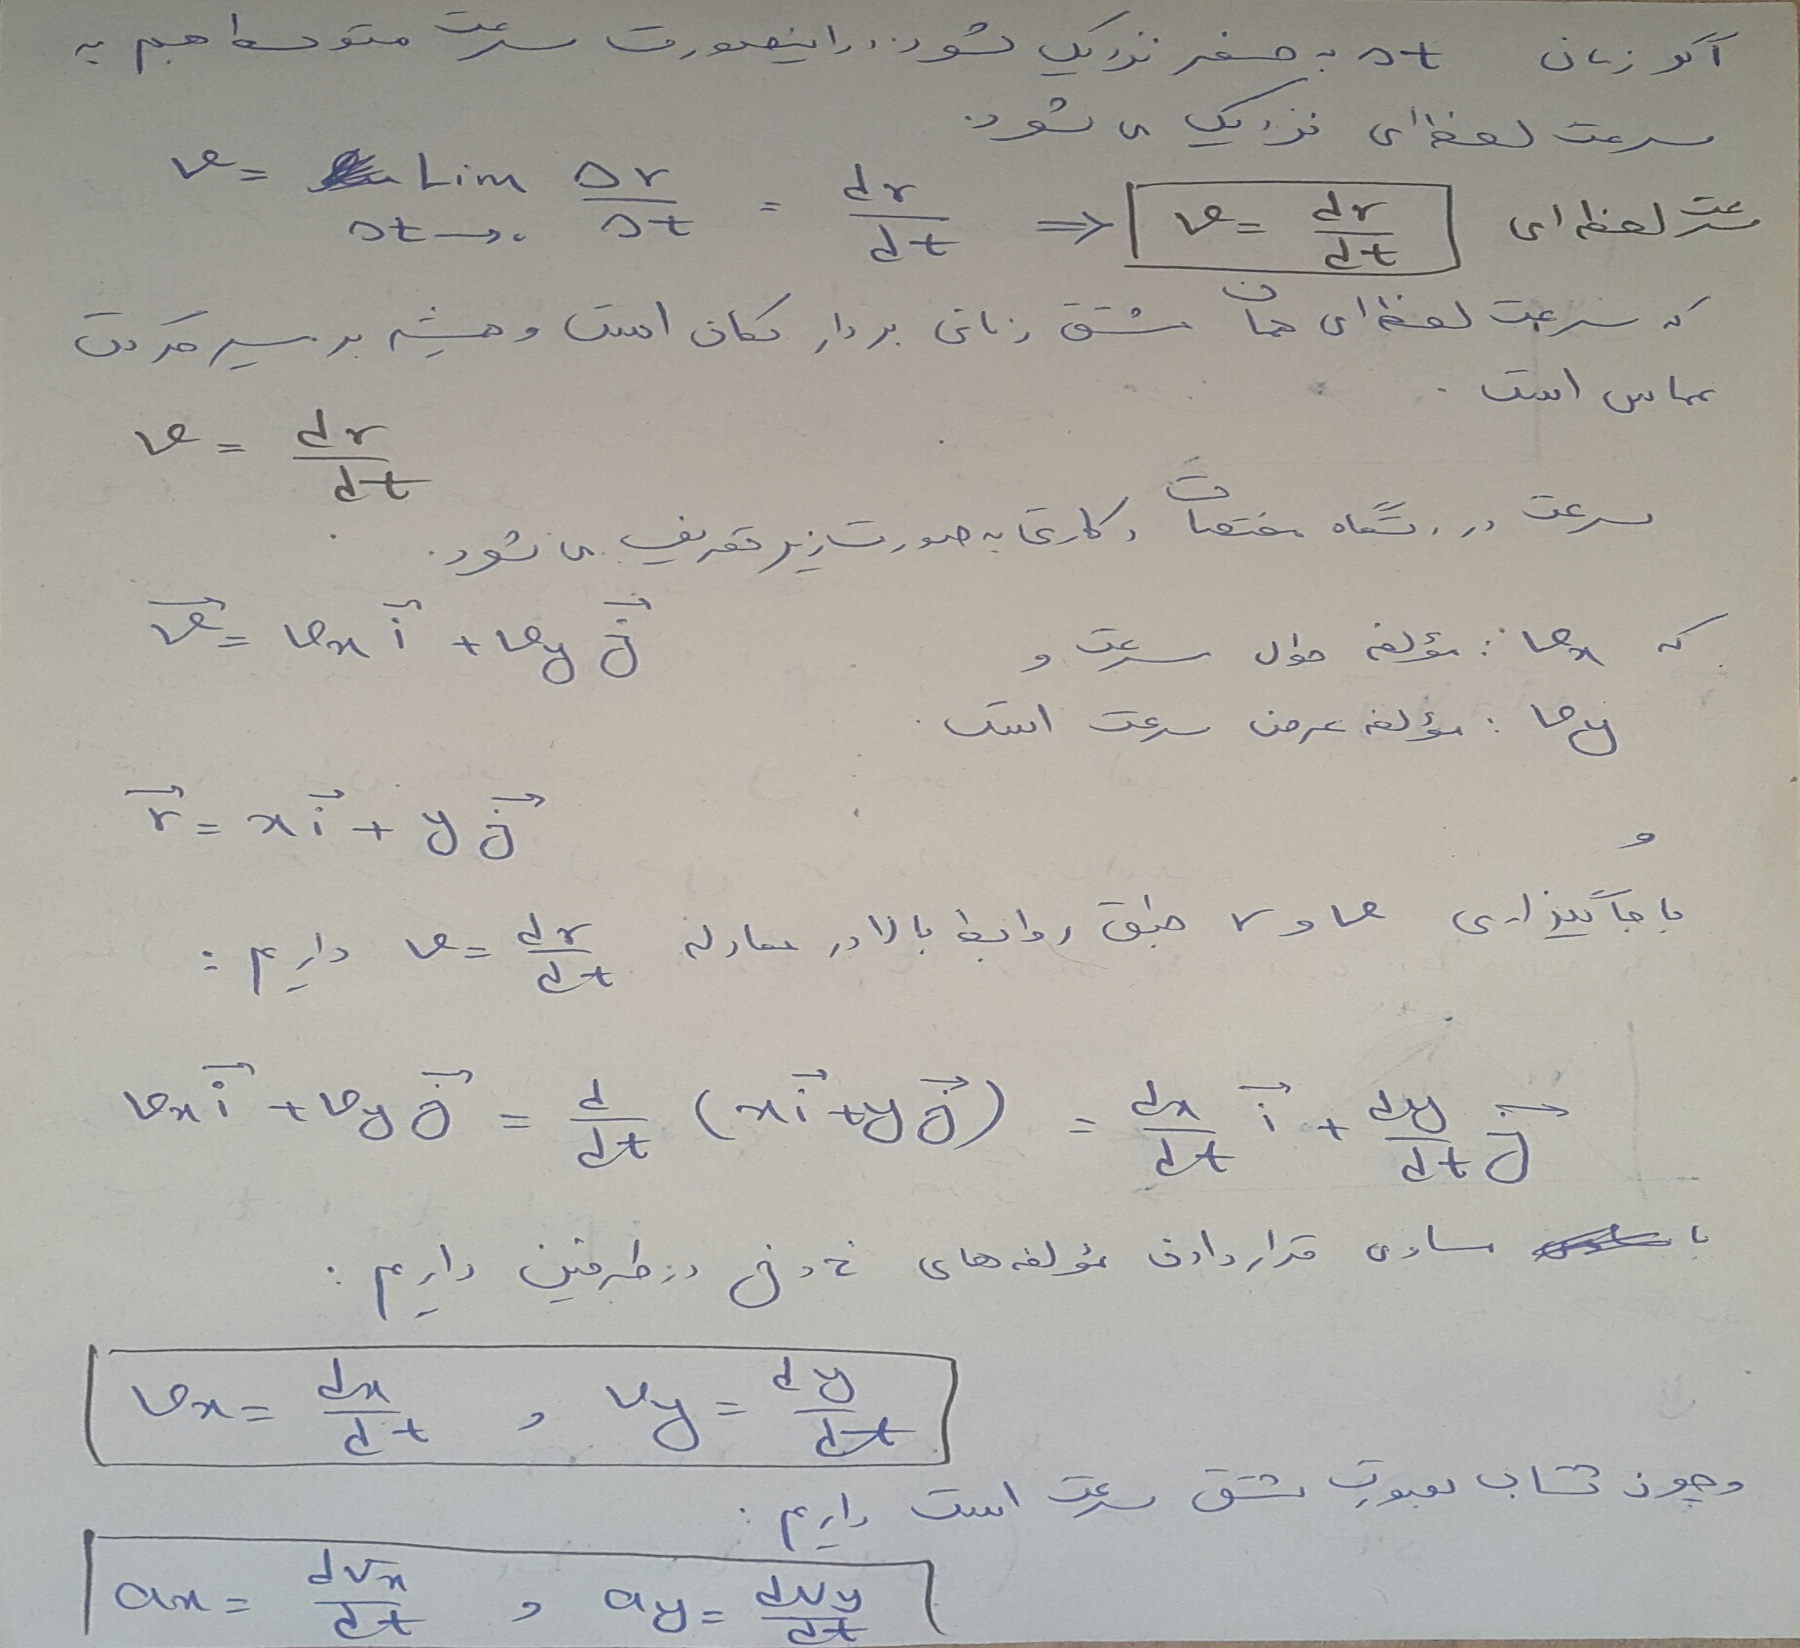 اگر زمان Δt به صفر نزدیک شود، در اینصورت سرعت متوسط هم به
سرعت لحظه‌ای نزدیک می شود.
v = Lim Δt→۰ Δr/Δt = dr/dt ⇒ v = dr/dt سرعت لحظه‌ای
که سرعت لحظه‌ای همان مشتق زمانی بردار مکان است و همیشه بر مسیر حرکت
مماس است.
v = dr/dt
سرعت در دستگاه مختصات دکارتی به صورت زیر تعریف می شود.
v⃗ = vx i⃗ + vy j⃗ که vx : مؤلفه طول سرعت و
vy : مؤلفه عرض سرعت است.
r⃗ = x i⃗ + y j⃗ و
با جاگیزاری v و r طبق روابط بالا در معادله v = dr/dt داریم :
vx i⃗ + vy j⃗ = d/dt (x i⃗ + y j⃗) = dx/dt i⃗ + dy/dt j⃗
با مساوی قرار دادن مؤلفه‌های i⃗ و j⃗ در طرفین داریم :
vx = dx/dt , vy = dy/dt
وچون شتاب بصورت مشتق سرعت است داریم :
ax = dvx/dt , ay = dvy/dt